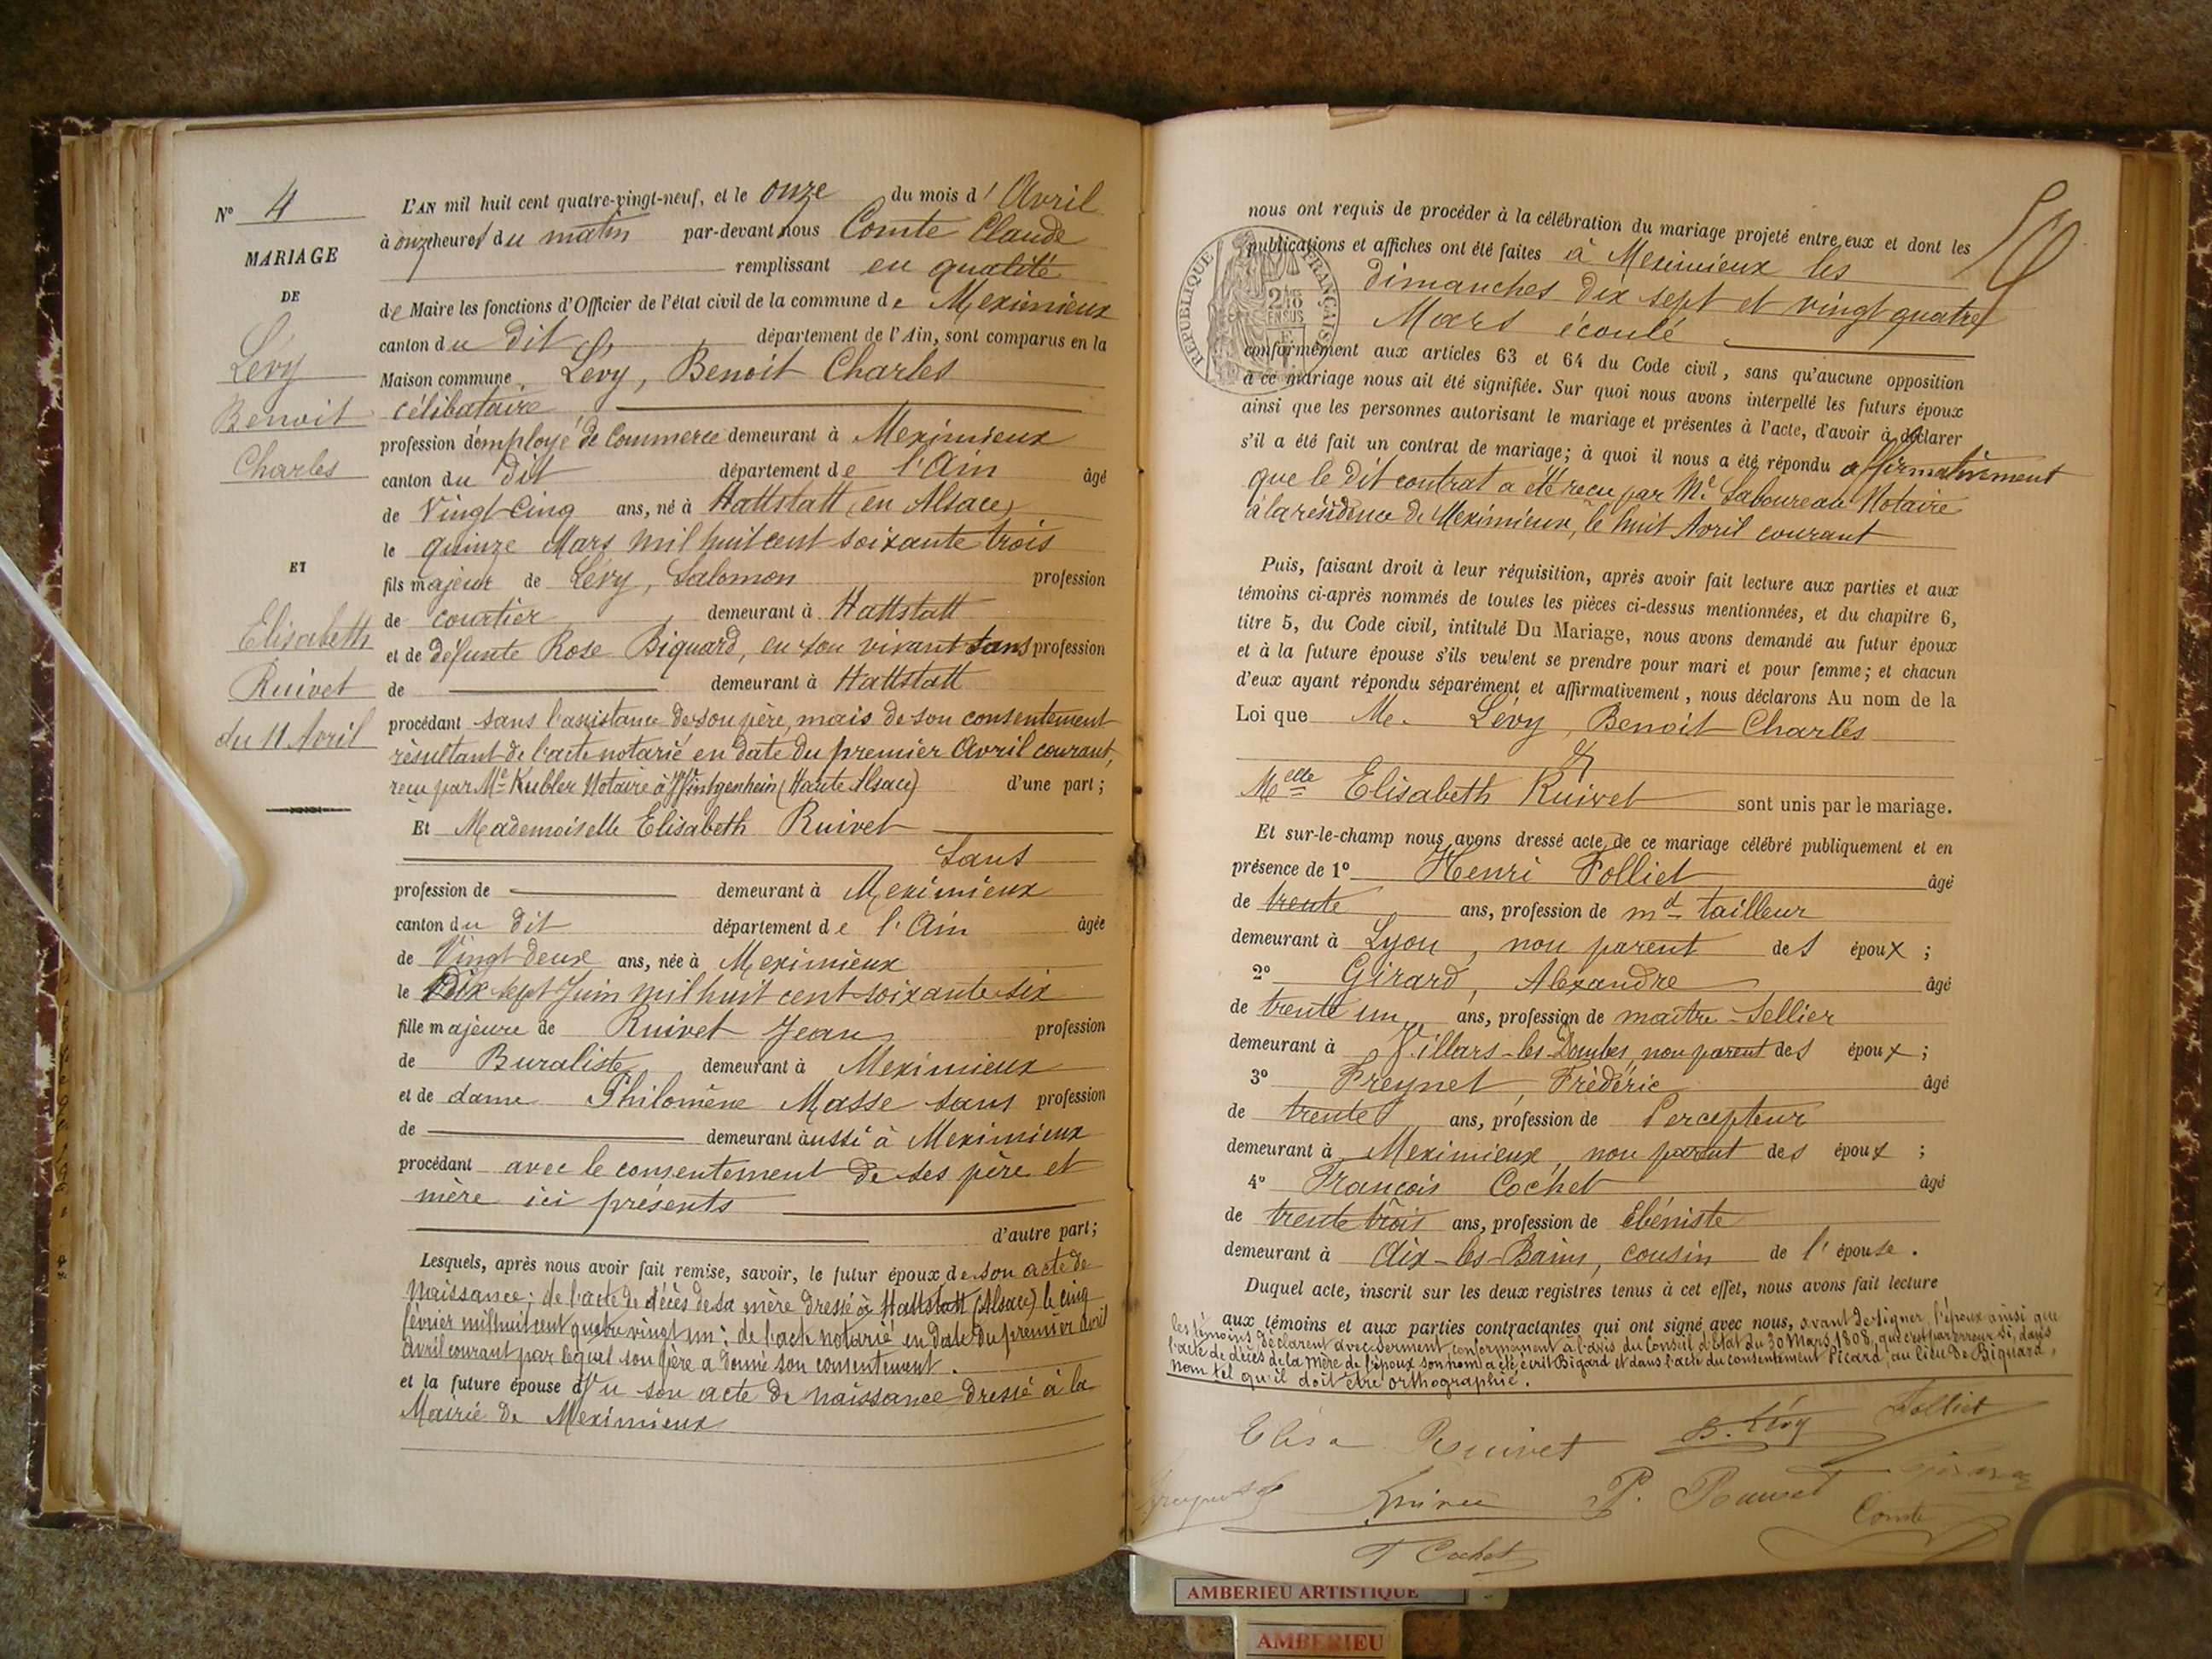 N° 4
MARIAGE
DE
Lévy
Benoit
Charles
ET
Elisabeth
Ruivet
du 11 Avril
L'AN mil huit cent quatre-vingt-neuf, et le onze du mois d'Avril
à onze heures du matin par-devant nous Comte Claude
remplissant en qualité
de Maire les fonctions d'Officier de l'état civil de la commune de Meximieux
canton du dit département de l'Ain, sont comparus en la
Maison commune, Lévy, Benoit Charles
célibataire
profession d'employé de Commerce demeurant à Meximieux
canton du dit département de l'Ain âgé
de Vingt-cinq ans, né à Hattstatt (en Alsace)
le quinze Mars mil huit cent soixante trois
fils majeur de Lévy, Salomon profession
de courtier demeurant à Hattstatt
et de défunte Rose Biquard, en son vivant sans profession
de demeurant à Hattstatt
procédant sans l'assistance de son père, mais de son consentement
résultant de l'acte notarié en date du premier Avril courant,
reçu par Me Kubler Notaire à (Haute Alsace) d'une part;
Et Mademoiselle Elisabeth Ruivet
sans
profession de demeurant à Meximieux
canton du dit département de l'Ain âgée
de Vingt deux ans, née à Meximieux
le Dix sept Juin mil huit cent soixante six
fille majeure de Ruivet Jean profession
de Buraliste demeurant à Meximieux
et de dame Philomène Masse sans profession
de demeurant aussi à Meximieux
procédant avec le consentement de ses père et
mère ici présents
d'autre part;
Lesquels, après nous avoir fait remise, savoir, le futur époux de son acte de
Naissance; de l'acte de décès de sa mère dressé à Hattstatt (Alsace) le cinq
février mil huit cent quatre vingt un; de l'acte notarié en date du premier avril
avril courant par lequel son père a donné son consentement.
et la future épouse d'u son acte de naissance dressé à la
Mairie de Meximieux
nous ont requis de procéder à la célébration du mariage projeté entre eux et dont les
publications et affiches ont été faites à Meximieux les
dimanches dix sept et vingt quatre
Mars écoulé
RÉPUBLIQUE FRANÇAISE
conformément aux articles 63 et 64 du Code civil, sans qu'aucune opposition
à ce mariage nous ait été signifiée. Sur quoi nous avons interpellé les futurs époux
ainsi que les personnes autorisant le mariage et présentes à l'acte, d'avoir à déclarer
s'il a été fait un contrat de mariage; à quoi il nous a été répondu affirmativement
que le dit contrat a été reçu par Me Laboureau Notaire
à la résidence de Meximieux, le huit Avril courant
Puis, faisant droit à leur réquisition, après avoir fait lecture aux parties et aux
témoins ci-après nommés de toutes les pièces ci-dessus mentionnées, et du chapitre 6,
titre 5, du Code civil, intitulé Du Mariage, nous avons demandé au futur époux
et à la future épouse s'ils veulent se prendre pour mari et pour femme; et chacun
d'eux ayant répondu séparément et affirmativement, nous déclarons Au nom de la
Loi que Mr. Lévy, Benoit Charles
&
Melle Elisabeth Ruivet sont unis par le mariage.
Et sur-le-champ nous avons dressé acte de ce mariage célébré publiquement et en
présence de 1° Henri Folliet âgé
de trente ans, profession de md tailleur
demeurant à Lyon, non parent des époux;
2° Girard, Alexandre âgé
de trente un ans, profession de maître-sellier
demeurant à Villars-les-Dombes, non parent des époux;
3° Freynet, Frédéric âgé
de trente ans, profession de Percepteur
demeurant à Meximieux, non parent des époux;
4° François Cochet âgé
de trente trois ans, profession de Ebéniste
demeurant à Aix-les-Bains, cousin de l'épouse.
Duquel acte, inscrit sur les deux registres tenus à cet effet, nous avons fait lecture
aux témoins et aux parties contractantes qui ont signé avec nous, avant de signer, l'époux ainsi que
les témoins déclarent avec serment, conformément à l'avis du Conseil d'Etat du 30 Mars 1808, que c'est par erreur si, dans
l'acte de décès de la mère de l'époux son nom a été écrit Bigard et dans l'acte du consentement Picard, au lieu de Biquard,
nom tel qu'il doit être orthographié.
Elisa Ruivet B. Lévy Folliet
P. Ruivet Girard
Comte
F Cochet
AMBERIEU ARTISTIQUE
AMBERIEU